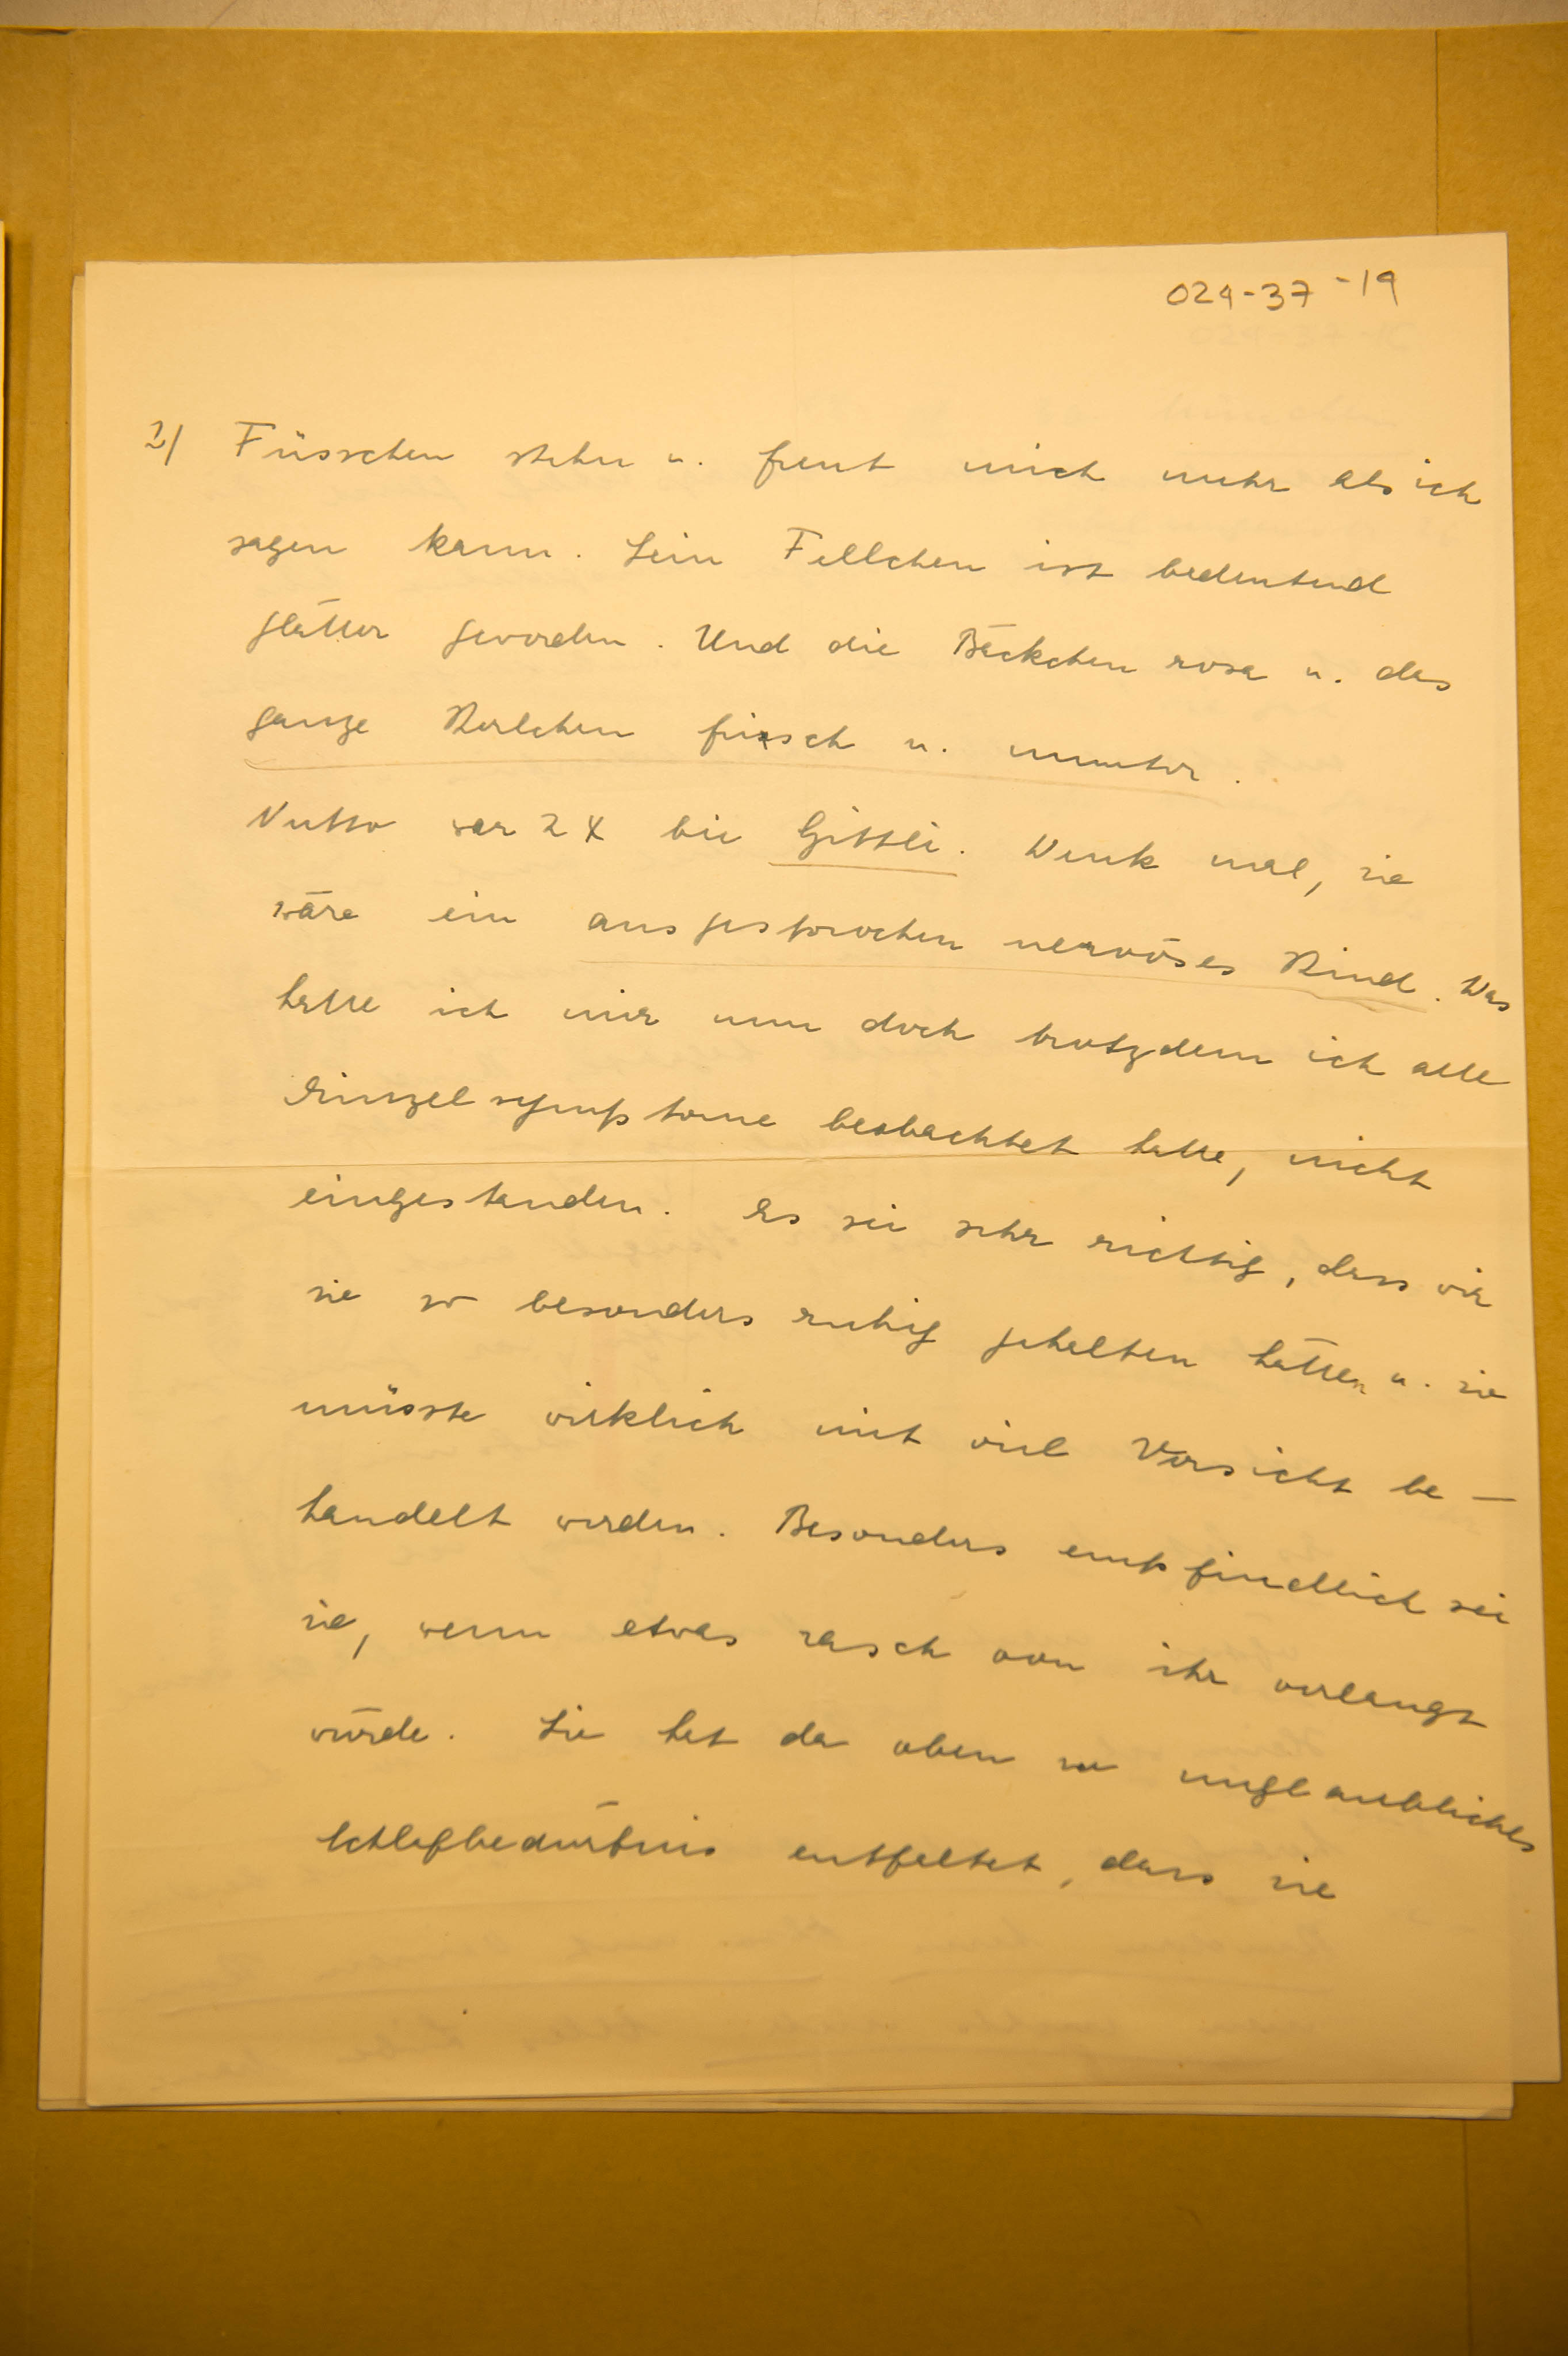 024-37-19
2/ Füsschen stehn u. freut mich mehr als ich
sagen kann. Sein Fellchen ist bedeutend
glätter geworden. Und die Bäckchen rosa u. das
ganze Kerlchen frisch u. munter.
Nutto war 2 X bei Gittli. Denk mal, sie
wäre ein ausgesprochen nervöses Kind. Das
hatte ich mir nun doch trotzdem ich alle
Einzelsymptome beobachtet hatte, nicht
eingestanden. Es sei sehr richtig, dass wir
sie so besonders ruhig gehalten hätten u. sie
müsste wirklich mit viel Vorsicht be-
handelt werden. Besonders empfindlich sei
sie, wenn etwas rasch von ihr verlangt
würde. Sie hat da oben so unglaubliches
Schlafbedürfnis entfaltet, dass sie